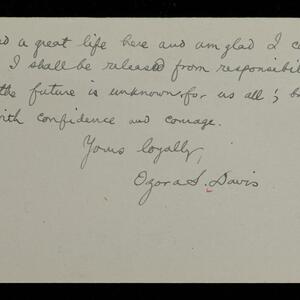 a great life here and am glad I c
I shall be released from responsibil
the future is unknown for us all; b
with confidence and courage.
Yours loyally,
Ozora S. Davis